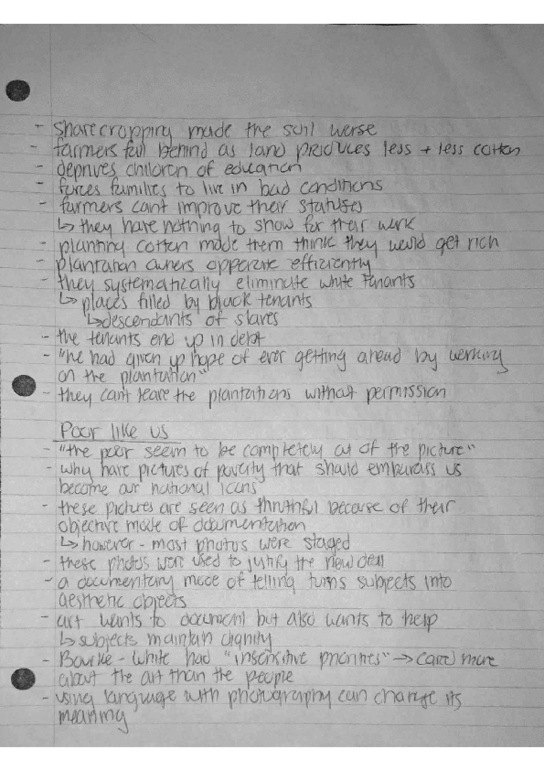 - sharecropping made the soil worse
- farmers fall behind as land produces less + less cotton
- deprives children of education
- forces families to live in bad conditions
- farmers cant improve their statuses
↳ they have nothing to show for their work
- planting cotton made them think they would get rich
- plantation owners opperate efficiently
- they systematically eliminate white tenants
↳ places filled by black tenants
↳ descendants of slaves
- the tenants end up in debt
- "he had given up hope of ever getting ahead by working
on the plantation"
- they cant leave the plantations without permission
Poor like us
- "the poor seem to be completely out of the picture"
- why have pictures of poverty that should embarass us
become our national icons
- these pictures are seen as thruthful because of their
objective mode of documentation
↳ however - most photos were staged
- these photos were used to justify the New deal
- a documentary mode of telling turns subjects into
aesthetic objects
- art wants to document but also wants to help
↳ subjects maintain dignity
- Bourke-White had "insensitive priorities" → cared more
about the art than the people
- using language with photography can change its
meaning